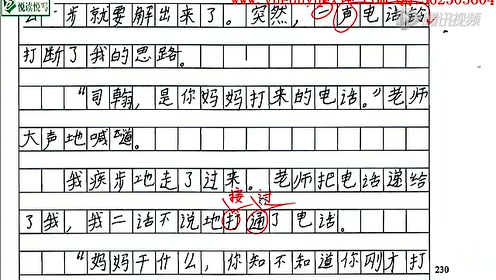 悦读悦写
腾讯视频
一步就要解出来了。突然，一声电话铃
打断了我的思路。
“司翰，是你妈妈打来的电话。”老师
大声地喊道。
我疾步地走了过来。老师把电话递给
接过
了我，我二话不说地打通了电话。
“妈妈干什么，你知不知道你刚才打
230